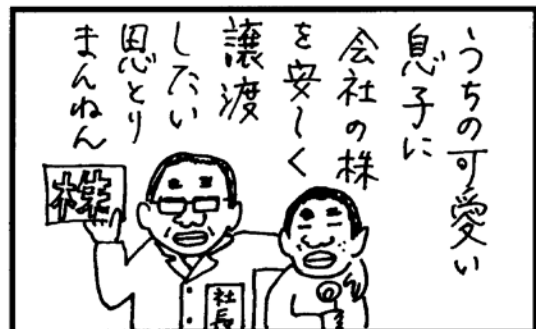 うちの可愛い
息子に
会社の株
を安〜く
譲渡
したい
思とり
まんねん
株
社長